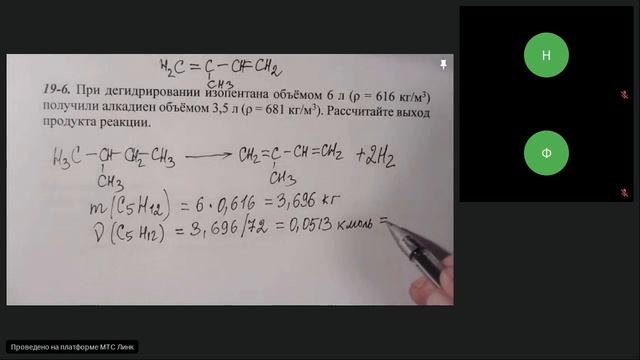 H₂C = C – CH=CH₂
CH₃
19-6. При дегидрировании изопентана объёмом 6 л (ρ = 616 кг/м³)
получили алкадиен объёмом 3,5 л (ρ = 681 кг/м³). Рассчитайте выход
продукта реакции.
H₃C – CH – CH₂ – CH₃ → CH₂=C – CH=CH₂ + 2H₂
CH₃ CH₃
m(C₅H₁₂) = 6 · 0,616 = 3,696 кг
ν(C₅H₁₂) = 3,696/72 = 0,0513 кмоль =
Н
Ф
Проведено на платформе МТС Линк